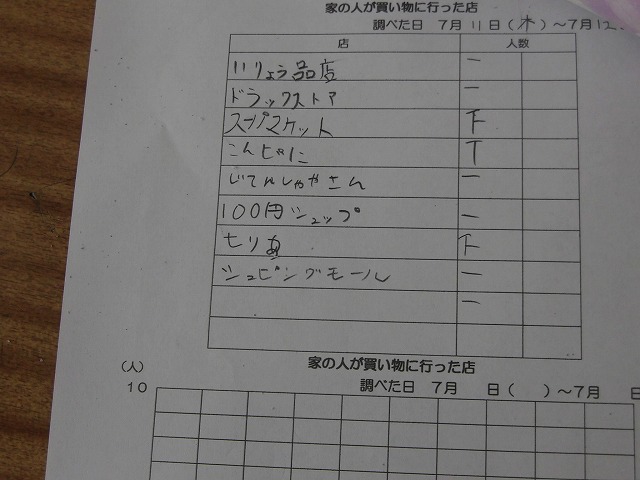 家の人が買い物に行った店
調べた日 7月11日(木)～7月12
店 人数
いりょう品店 一
ドラックストア 一
スーパマケット 下
こんじゃに T
じてんしゃやさん 一
100円ショップ 一
セリあ 下
ショピングモール 一
一
家の人が買い物に行った店
(人) 調べた日 7月 日( )～7月 日
10